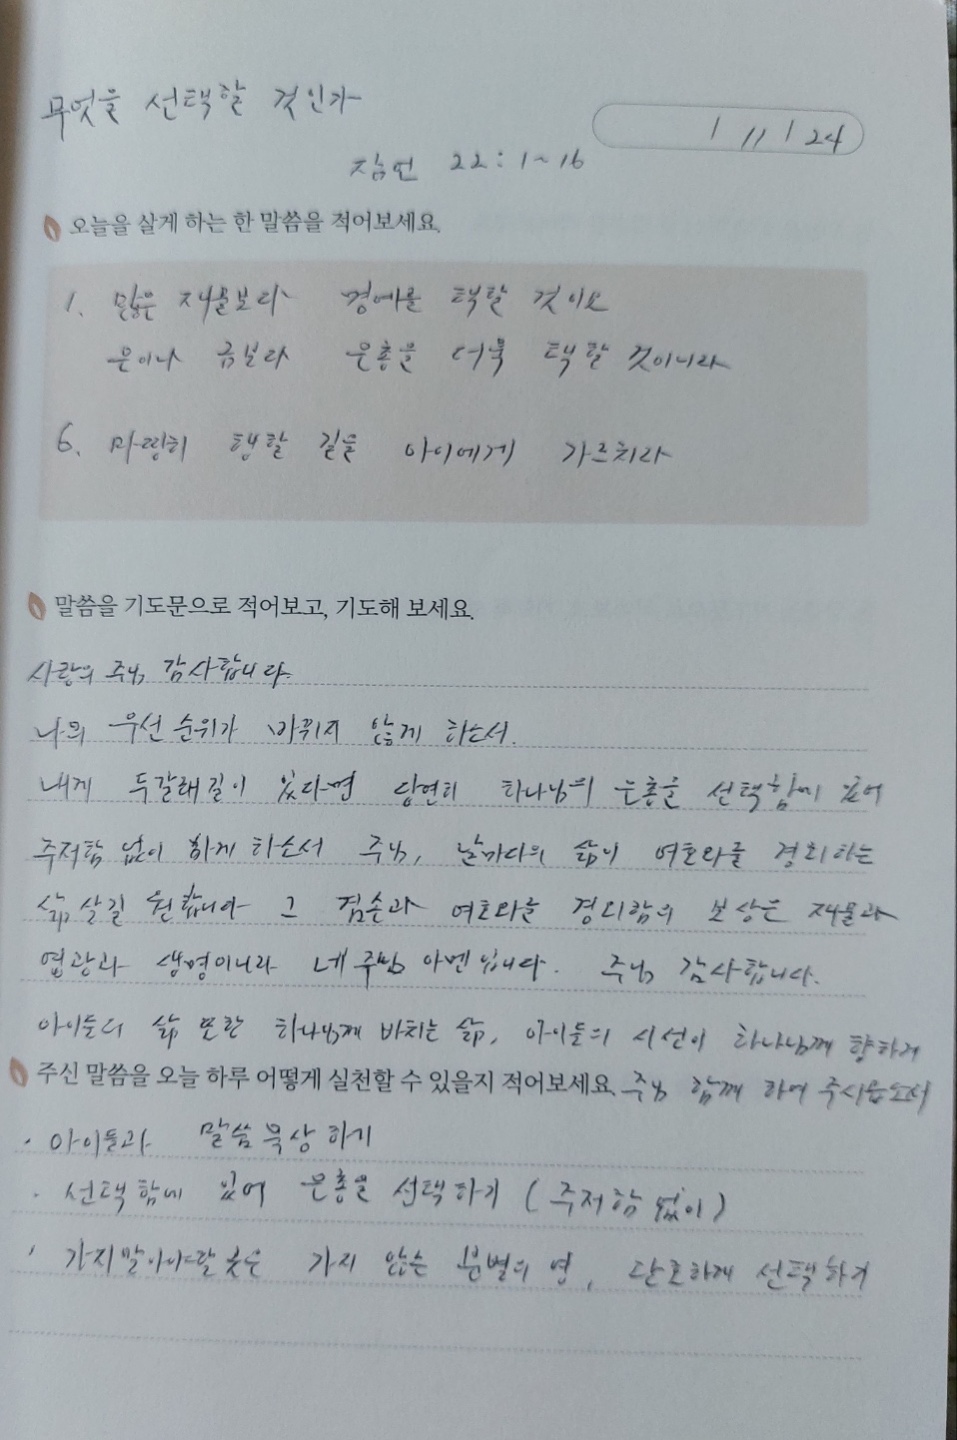 무엇을 선택할 것인가
1 11 1 24
잠언 22:1~16
오늘을 살게 하는 한 말씀을 적어보세요.
1. 많은 재물보다 명예를 택할 것이요
은이나 금보다 은총을 더욱 택할 것이니라
6. 마땅히 행할 길을 아이에게 가르치라
말씀을 기도문으로 적어보고, 기도해 보세요.
사랑의 주님 감사합니다.
나의 우선순위가 바뀌지 않게 하소서.
내게 두갈래길이 있다면 당연히 하나님의 은총을 선택함에 있어
주저함 없이 하게 하소서 주님, 날마다의 삶이 여호와를 경외하는
삶 살길 원합니다 그 겸손과 여호와를 경외함의 보상은 재물과
영광과 생명이니라 네 주님 아멘입니다. 주님 감사합니다.
아이들의 삶 또한 하나님께 바치는 삶, 아이들의 시선이 하나님께 향하게
주신 말씀을 오늘 하루 어떻게 실천할 수 있을지 적어보세요. 주님 함께 하여 주시옵소서
· 아이들과 말씀 묵상하기
· 선택함에 있어 은총을 선택하기 (주저함 없이)
· 가지말아야할 곳은 가지 않는 분별의 영, 단호하게 선택하기